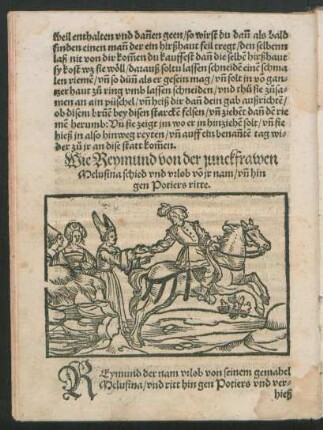 weil enthalten vnd dañen geen/so wirst du dañ als bald
finden einen mañ der ein hirßhaut feil tregt/den selbenn
laß nit von dir kom̃en du kauffest dañ die selbẽ hirßhaut
sy kost wz sie wöll. darauß soltu lassen schneidẽ einẽ schma
len riemẽ/vñ so dün̄ als er gesein mag/vñ solt jn võ gan⸗
tzer haut zů ring vmb lassen schneiden/vnd thů sie zůsa⸗
men an ain püschel/vñ heiß dir dañ dein gab außrichtẽ/
ob disem brũẽ bey disen starckẽ felsen/vñ ziehẽt dañ dẽ rie
mẽ herumb: Vñ sie zeigt jm wo er jn hinziehẽ solt/vñ sie
hieß jn also hinweg reyten/vñ auff ein benañtẽ tag wi⸗
der zů jr an dise statt kom̃en.
Wie Reymund von der junckfrawen
Melusina schied vnd vrlob võ jr nam/vñ hin
gen Potiers ritte.
REymund der nam vrlob von seinem gemahel
Melusina/vnd ritt hin gen Potiers vnd ver⸗
hieß